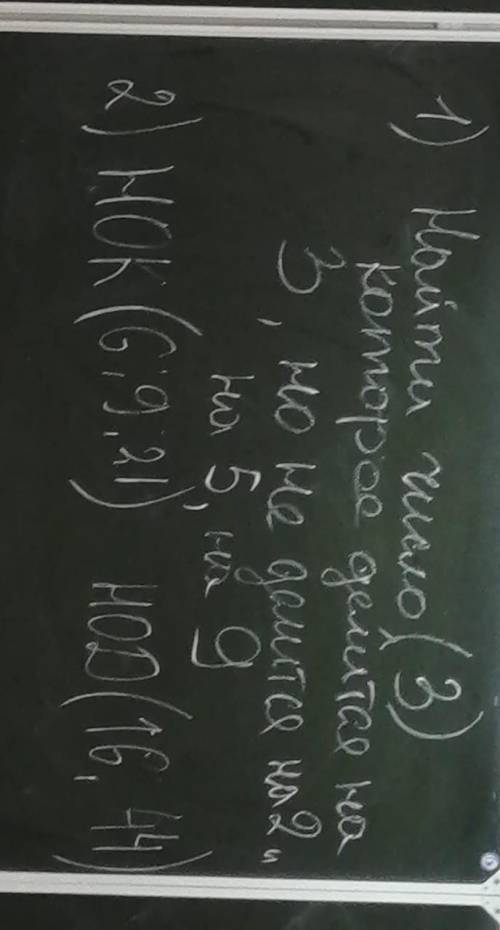 1) Найти число, (3)
которое делится на
3, но не делится на 2,
на 5, на 9
2) НОК (6, 9, 21) НОД (16, 44)